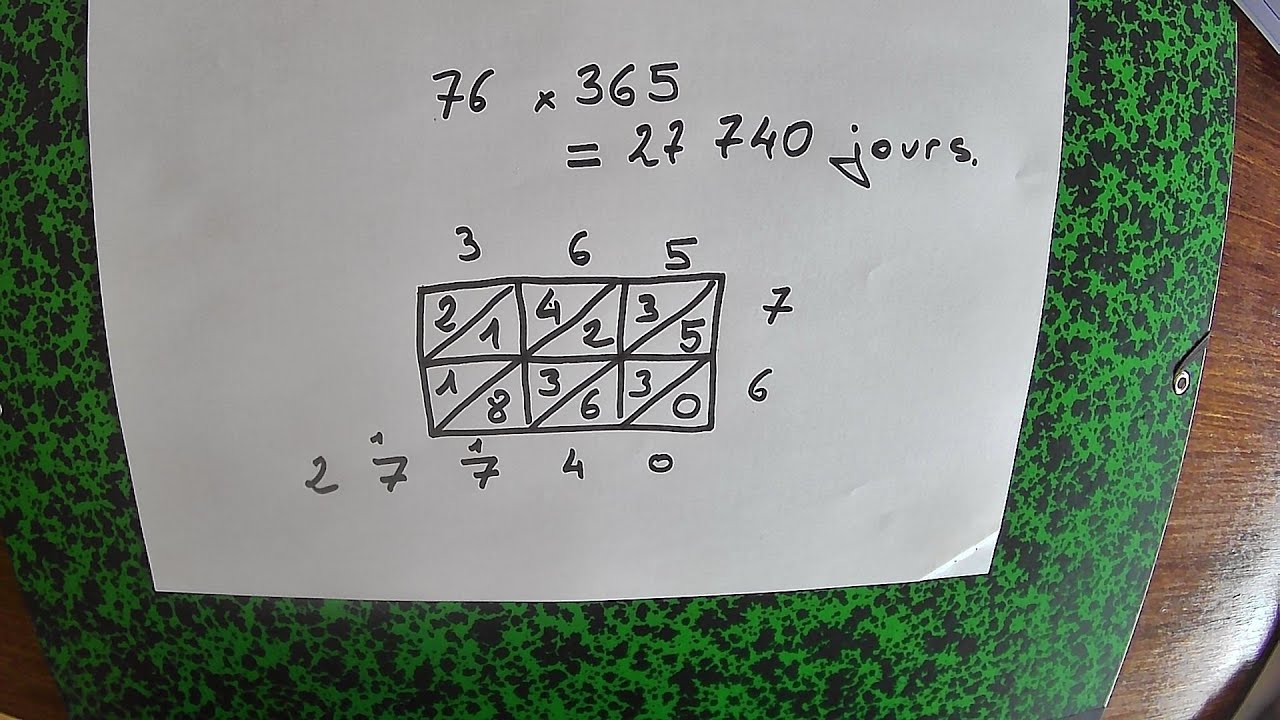 76 × 365
= 27 740 jours.
3 6 5
2 1 4 2 3 5 7
1 8 3 6 3 0 6
1 1
2 7 7 4 0